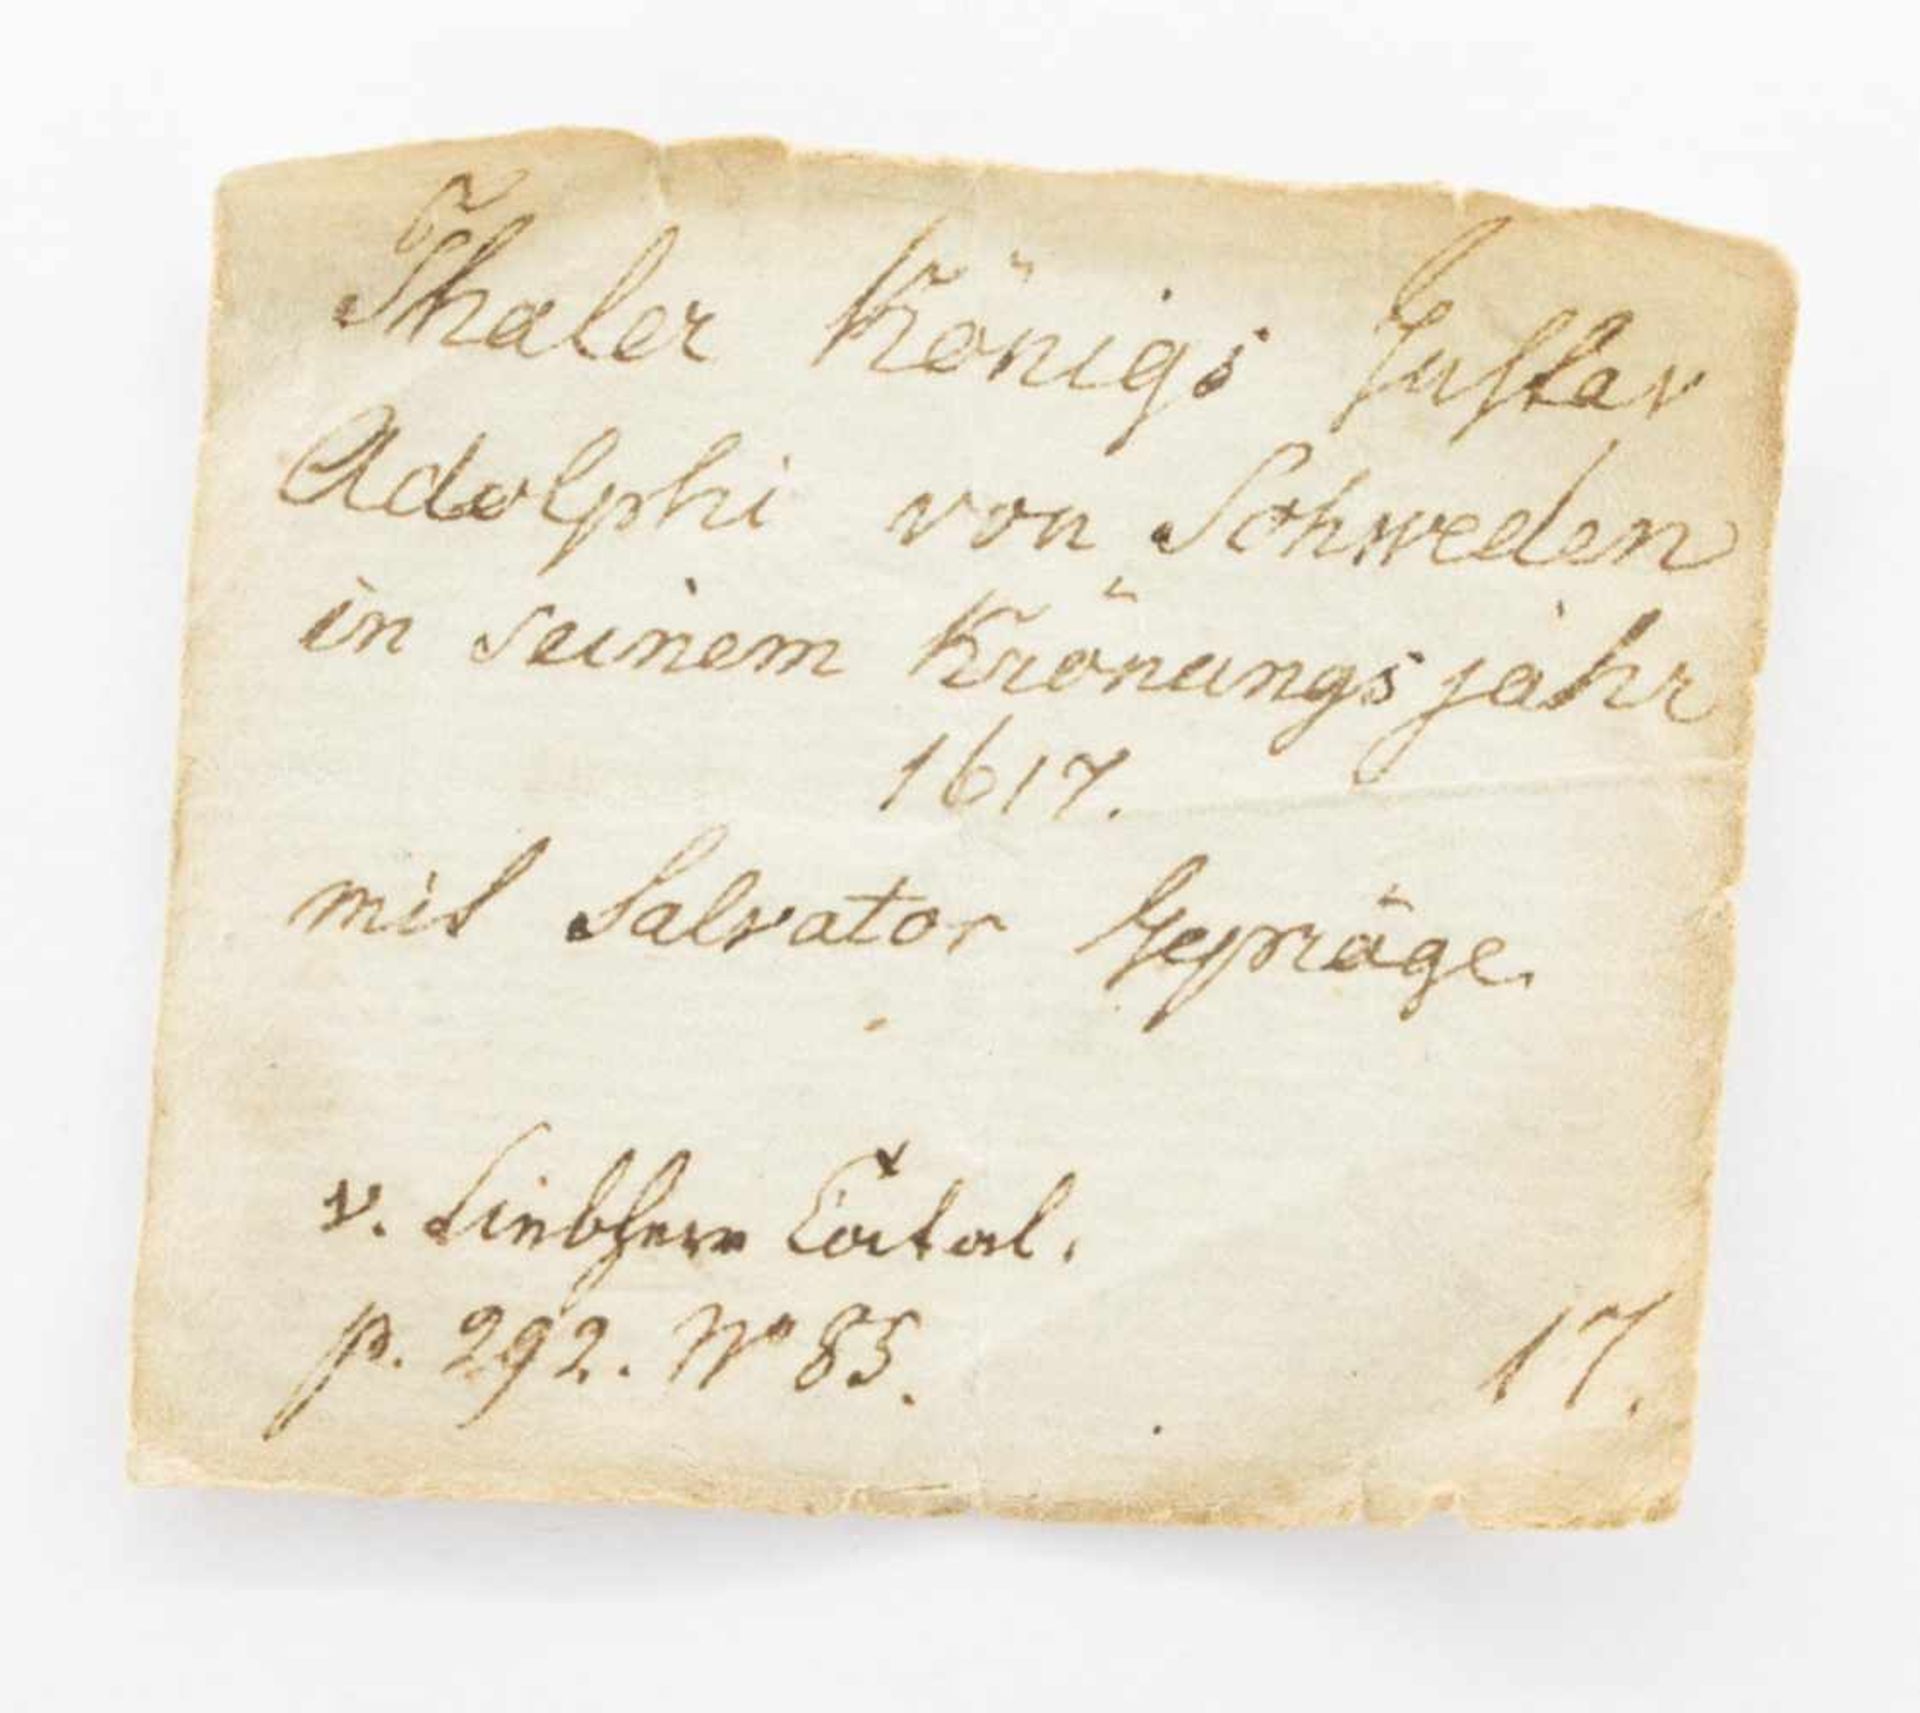 Thaler Königs Gustav
Adolphi von Schweden
in seinem Krönungsjahr
1617.
mit Salvator Gepräge.
v. Liebherr Catal.
p. 292. No 85.
17.